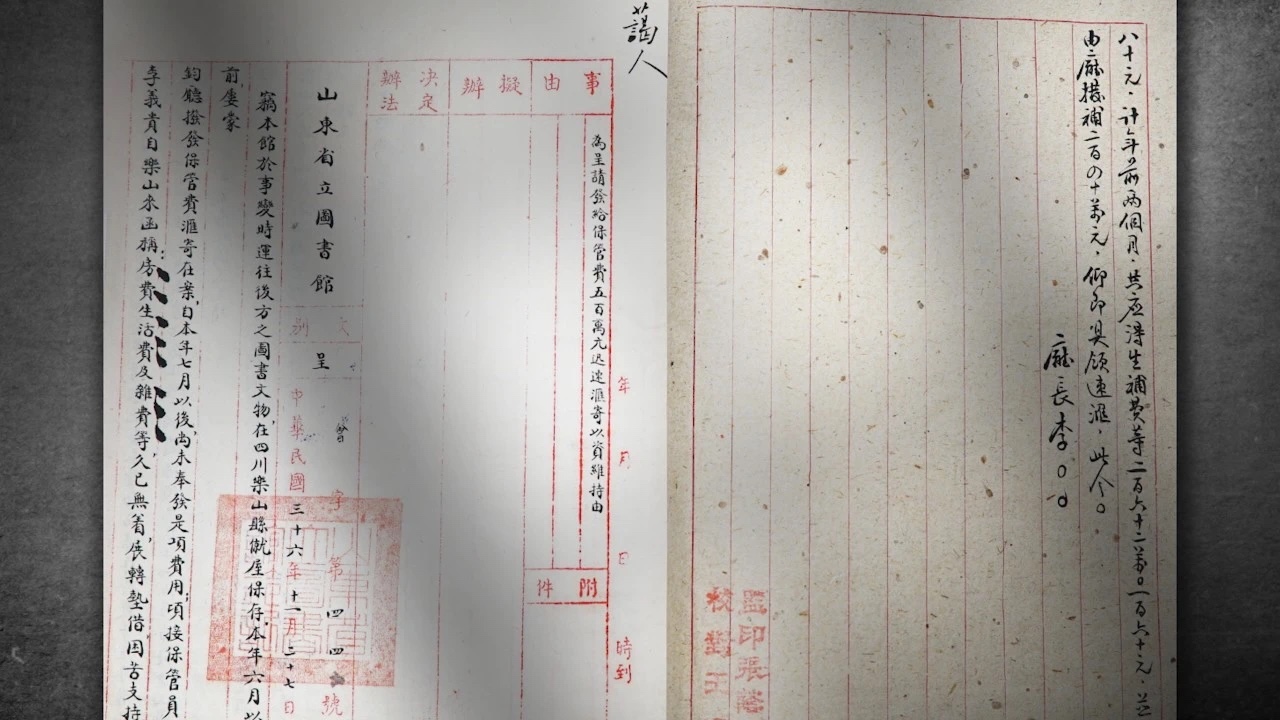 八十元．計年前兩個月．共应得生補費等二百六十二萬〇一百六十元．並
由廰撥補二百四十萬元．仰即具領速滙．此令。
廰長李〇〇
監印張
校對王
藹人
事由
擬辦
決定辦法
為呈請發給保管費五百萬元迅速滙寄以資維持由
附件
年月日時到
山東省立圖書館
文別
呈
字第四四號
中華民國三十六年十一月二十七日
竊本館於事變時運往後方之圖書文物，在四川樂山縣僦屋保存，本年六月以
前，屢蒙
鈞廳撥發保管費滙寄在案，自本年七月以後，尚未奉發是項費用；頃接保管員
李義貴自樂山來函稱：房費生活費及雜費等，久已無着，展轉墊借困苦支持